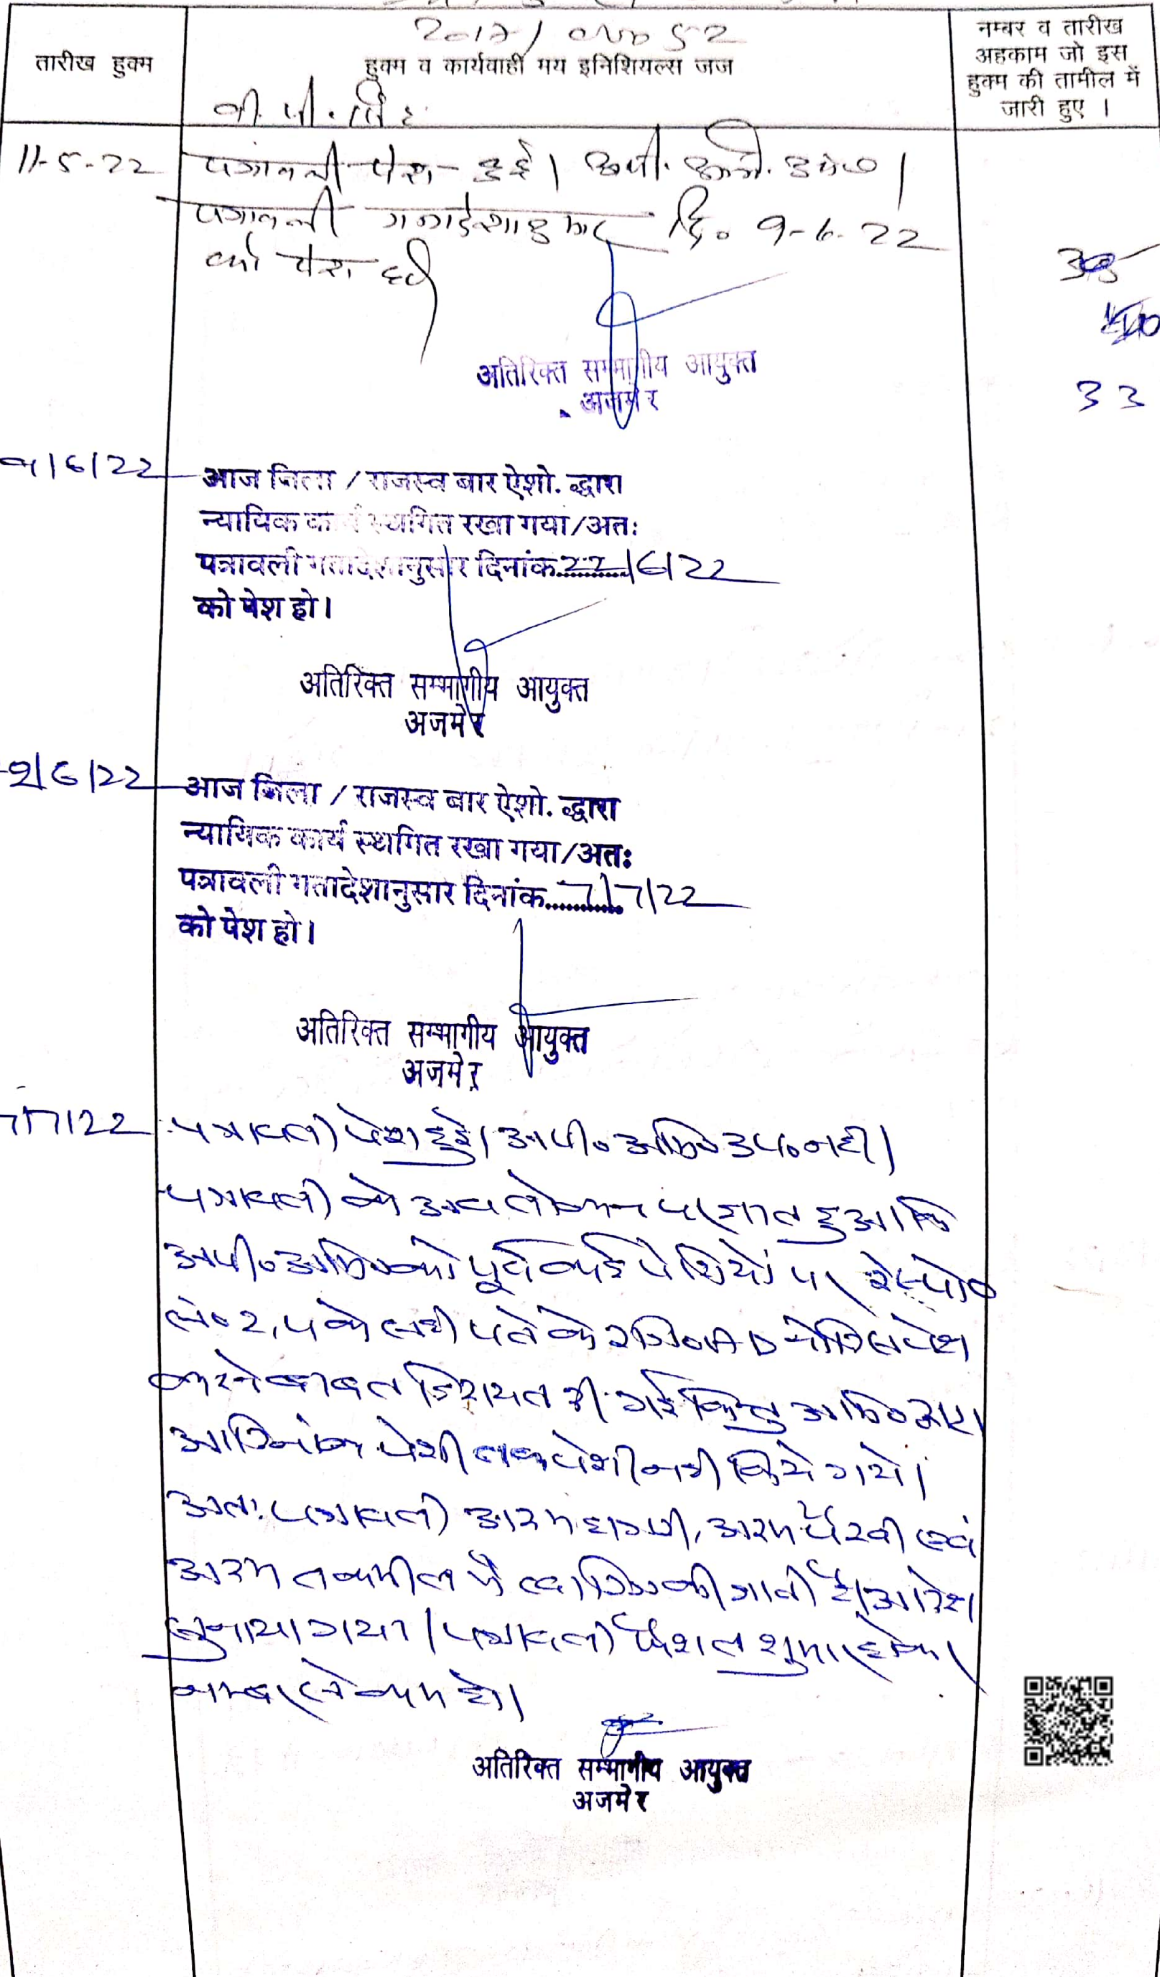 2017/ 52
तारीख हुक्म
हुक्म व कार्यवाही मय इनिशियल्स जज
नम्बर व तारीख
अहकाम जो इस
हुक्म की तामील में
जारी हुए ।
11-5-22 पत्रावली पेश हुई। अपी. अभि. उप० ।
पत्रावली गतादेशानुसार दि० 9-6-22
को पेश हो
33
अतिरिक्त सम्भागीय आयुक्त
अजमेर
9/6/22 आज जिला / राजस्व बार ऐशो. द्धारा
न्यायिक कार्य स्थगित रखा गया/अतः
पत्रावली गतादेशानुसार दिनांक 22/6/22
को पेश हो।
अतिरिक्त सम्भागीय आयुक्त
अजमेर
2/6/22 आज जिला / राजस्व बार ऐशो. द्धारा
न्यायिक कार्य स्थगित रखा गया/अतः
पत्रावली गतादेशानुसार दिनांक 7/7/22
को पेश हो।
अतिरिक्त सम्भागीय आयुक्त
अजमेर
7/7/22 पत्रावली पेश हुई। अपी० अभि० उप० नही।
पत्रावली के अवलोकन पर ज्ञात हुआ कि
अपी० अभि० को पूर्व कई पेशियों पर रेस्पो०
सं० 2, 4 के सही पते के रजि० AD नोटिस पेश
करने बाबत हिदायत दी गई किन्तु अभि० द्वारा
आदिनांक पेशी तक पेश नही किये गये।
अतः पत्रावली अदम हाजरी, अदम पैरवी एवं
अदम तकमील में खारिज की जाती है। आदेश
सुनाया गया। पत्रावली फैशल शुमार होकर
नम्बर से कम हो।
अतिरिक्त सम्भागीय आयुक्त
अजमेर